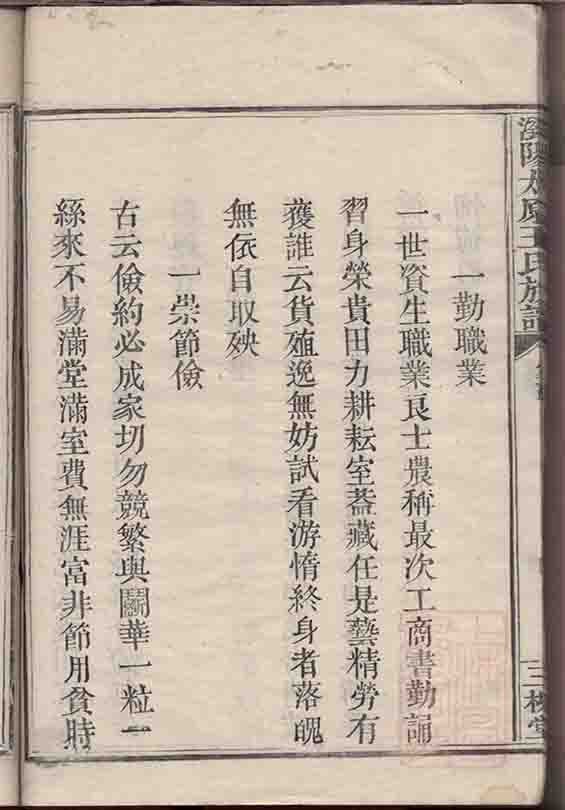 太原王氏族譜
三槐堂
一勤職業
一世資生職業良士農稱最次工商書勤誦
習身榮貴田力耕耘室葢藏任是藝精勞有
獲誰云貨殖逸無妨試看游惰終身者落魄
無依自取殃
一崇節儉
古云儉約必成家切勿競繁與鬬華一粒一
絲來不易滿堂滿室費無涯富非節用貧時